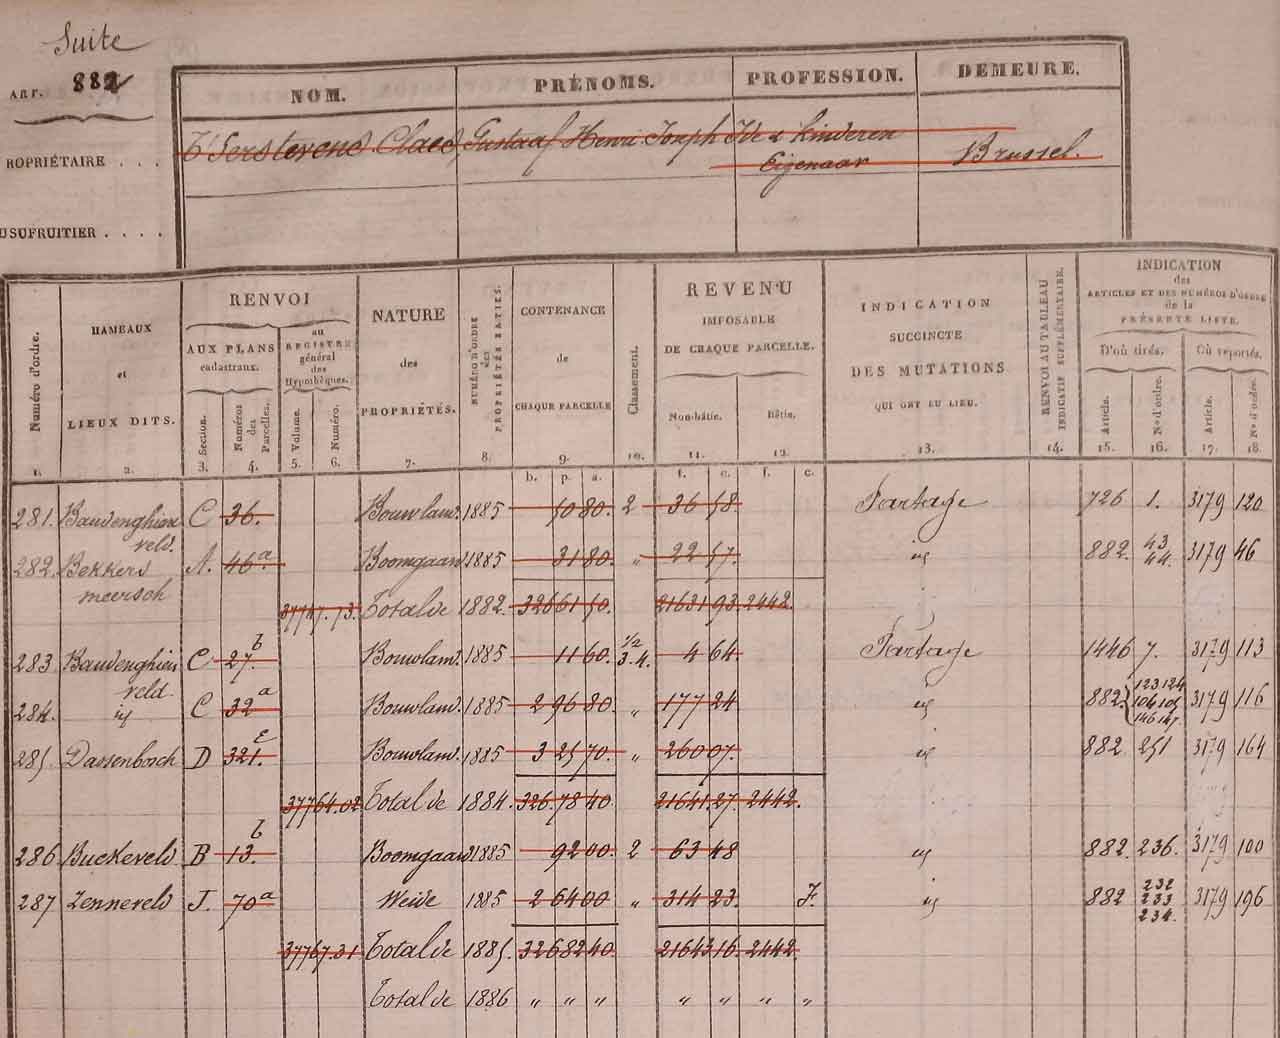 Suite
ART. 882
NOM. PRÉNOMS. PROFESSION. DEMEURE.
ROPRIÉTAIRE . . . T'Serstevens Claes, Gustaaf Henri Joseph Ide & kinderen
Eigenaar Brussel.
USUFRUITIER . . . .
Numéro d'ordre. 1.
HAMEAUX et LIEUX DITS. 2.
RENVOI
AUX PLANS cadastraux.
Section. 3.
Numéros des Parcelles. 4.
au REGISTRE général des Hypothèques.
Volume. 5.
Numéro. 6.
NATURE des PROPRIÉTÉS. 7.
NUMÉRO D'ORDRE des PROPRIÉTÉS BATIES. 8.
CONTENANCE de CHAQUE PARCELLE 9.
b. p. a.
Classement. 10.
REVENU IMPOSABLE DE CHAQUE PARCELLE.
Non-bâtie. 11.
f. c.
Bâtie. 12.
f. c.
INDICATION SUCCINCTE DES MUTATIONS QUI ONT EU LIEU. 13.
RENVOI AU TABLEAU INDICATIF SUPPLÉMENTAIRE. 14.
INDICATION des ARTICLES ET DES NUMÉROS D'ORDRE de la PRÉSENTE LISTE.
D'où tirés.
Article. 15.
N.o d'ordre. 16.
Où reportés.
Article. 17.
N.o d'ordre. 18.
281. Baudenghien C 36. Bouwland. 1885 50 80. 2 36 58 Partage 726 1. 3179 120
veld.
282. Bekkers A. 46a. Boomgaard 1885 31 80. " 22 57. id 882. 43 44. 3179 46
meersch
37747. 73. Total de 1882. 326 61 50. 21631 93. 2442.
283 Baudenghien C 27b. Bouwland. 1885 11 60. 1/2 3.4. 4 64. Partage 1446 7. 3179 113
veld.
284. id C 32a Bouwland. 1885 2 96 80. " 177 24 id 882. 123 124 104 105 146 147 3179 116
285. Dassenbosch D 321.E Bouwland. 1885 3 25 70. " 260 07. id 882 251 3179 164
37764.02 Total de 1884. 326.78 40 21641.27. 2442.
286 Buckeveld B 13.b Boomgaard 1885 92 00. 2 63 48 id 882. 236. 3179 100
287 Zenneveld J. 70a Weide 1885 2 64 00 " 314 23. J. id 882 232 233 234. 3179 196
37767.31 Total de 1885. 326 82 40. 21643 16. 2442.
Total de 1886 " " " " " " "